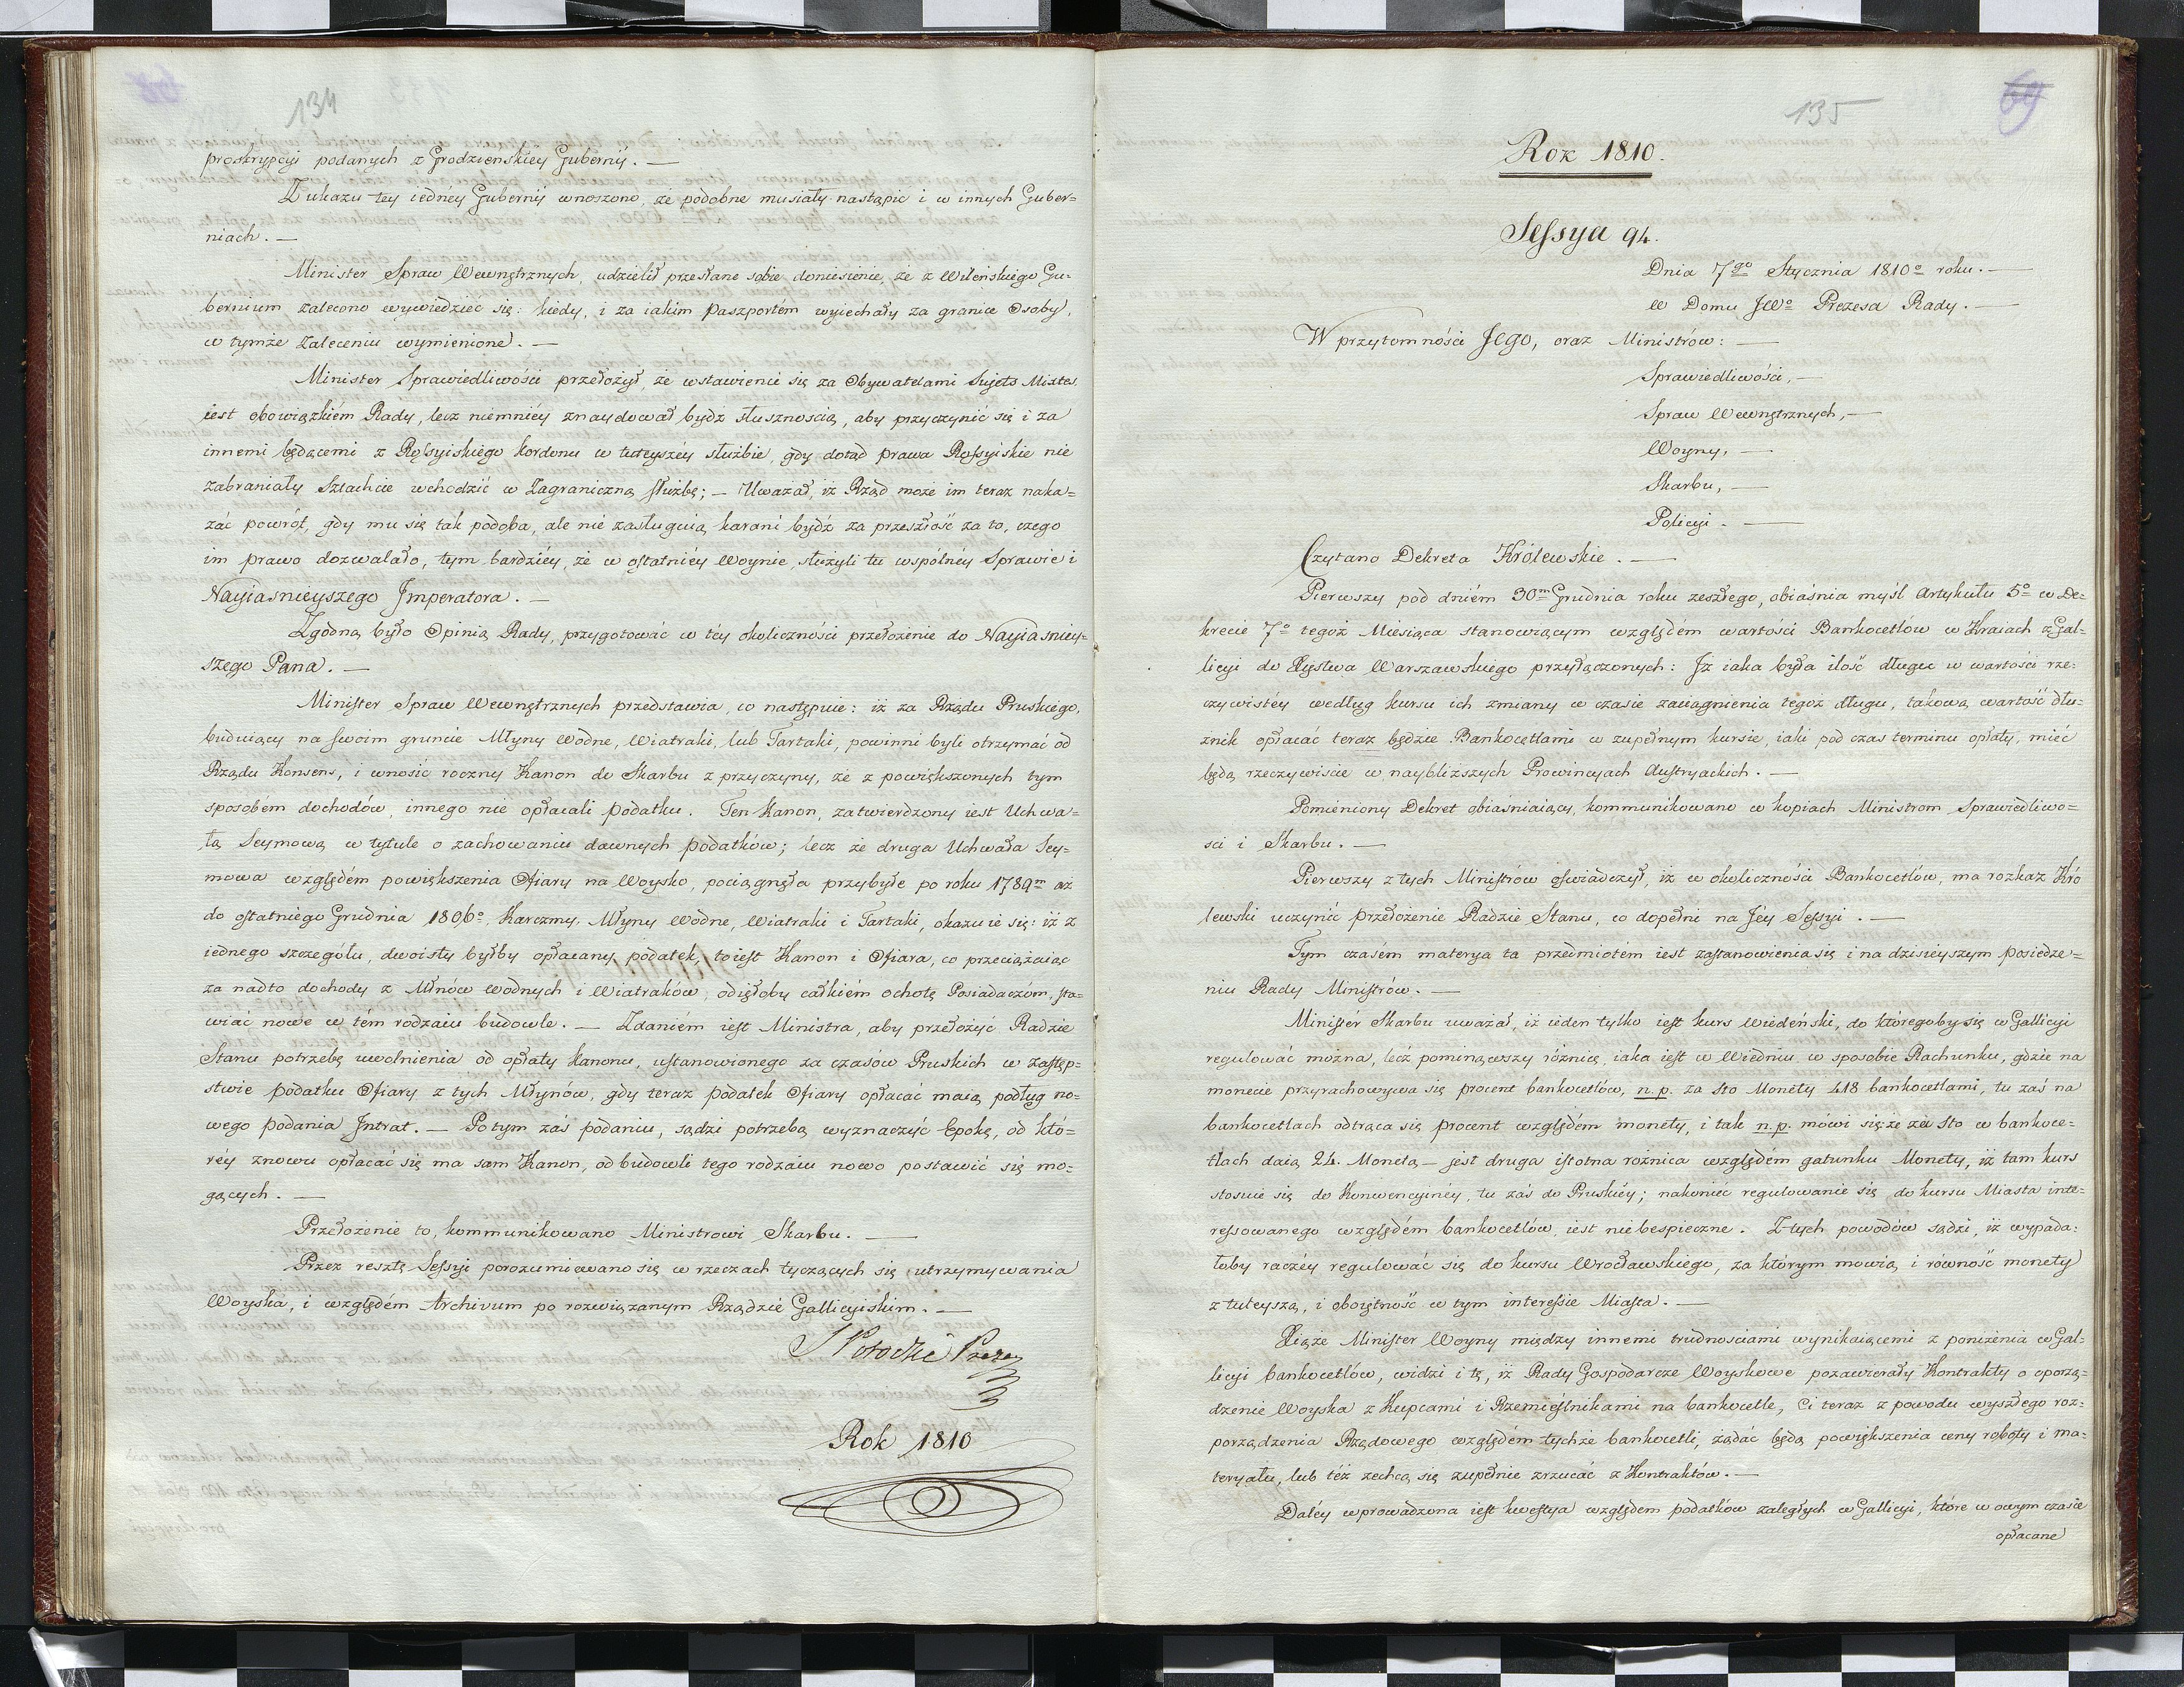 134
proskrypcyi podanych z Grodzienskiéy Gubernij. —
Z ukazu tey iednéy Gubernij wnoszono, że podobne musiały nastąpić i w innych Guber=
niach. —
Minister Spraw Wewnętrznych, udzielił przesłane sobie doniesienie, że z Wileńskiego Gu=
bernium zalecono wywiedzieć się: kiedy, i za iakim Paszportém wyiechały za granice Osoby,
w tymże Zaleceniu wymienione. —
Minister Sprawiedliwości przełożył, że wstawienie się za Obywatelami Sujets Mixtes,
iest obowiązkiém Rady, lecz niemniéy znaydował bydź słusznością, aby przyczynić się i za
innemi będącemi z Rossyiskiego kordonu w tuteyszéy służbie, gdy dotąd prawa Rossyiskie nie
zabraniały Szlachcie wchodzić w Zagraniczną służbę; — Uważał, iż Rząd może im teraz naka=
zać powrót, gdy mu się tak podoba, ale nie zasługuią karani bydź za przeszłość za to, czego
im prawo dozwalało, tym bardziéy, że w ostatniéy Woynie, służyli tu wspólnéy Sprawie i
Nayiasnieyszego Imperatora. —
Zgodną było Opinią Rady, przygotować w téy okoliczności przełożenie do Nayiasniey=
szego Pana. —
Minister Spraw Wewnętrznych przedstawia, co następuie: iż za Rządu Pruskiego,
buduiący na swoim gruncie Młyny Wodne, Wiatraki, lub Tartaki, powinni byli otrzymać od
Rządu Konsens, i wnosić roczny Kanon do Skarbu z przyczyny, że z powiększonych tym
sposobém dochodów, innego nie opłacali podatku. Ten Kanon, zatwierdzony iest Uchwa=
łą Seymową w tytule o zachowaniu dawnych podatków; lecz że druga Uchwała Sey=
mowa względém powiększenia Ofiary na Woysko, pociągnęła przybyłe po roku 1789m aż
do ostatniego Grudnia 1806o Karczmy, Młyny Wodne, Wiatraki i Tartaki, okazuie się: iż z
iednego szczegółu, dwoisty byłby opłacany podatek, toiest Kanon i Ofiara, co przeciążaiąc
za nadto dochody z Młnów wodnych i Wiatraków, odięłoby całkiém ochotę Posiadaczóm, sta=
wiać nowe w tém rodzaiu budowle. — Zdaniém iest Ministra, aby przełożyć Radzie
Stanu potrzebę uwolnienia od opłaty kanonu, ustanowionego za czasów Pruskich w zastęp=
stwie podatku Ofiary z tych Młynów, gdy teraz podatek Ofiary opłacać maią podług no=
wego podania Intrat. — Po tym zaś podaniu, sądzi potrzebą wyznaczyć Epokę, od któ=
réy znowu opłacać się ma sam Kanon, od budowli tego rodzaiu nowo postawić się mo=
gących. —
Przełożenie to, kommunikowano Ministrowi Skarbu. —
Przez resztę Sessyi porozumiewano się w rzeczach tyczących się utrzymywania
Woyska, i względém Archivum po rozwiązanym Rządzie Gallicyiskim. —
S Potocki Prezes
Rok 1810
135
69
Rok 1810.
Sessya 94.
Dnia 7go Stycznia 1810o roku. —
w Domu JWo Prezesa Rady. —
W przytomności Jego, oraz Ministrów: —
Sprawiedliwości, —
Spraw Wewnętrznych, —
Woyny, —
Skarbu, —
Policyi. —
Czytano Dekreta Królewskie. —
Pierwszy pod dniém 30m Grudnia roku zeszłego, obiaśnia myśl Artykułu 5o w De=
krecie 7o tegoż Miesiąca stanowiącym względém wartości Bankocetlów w Kraiach z Gal=
licyi do Xięstwa Warszawskiego przyłączonych: Iż iaka była ilość długu w wartości rze=
czywistéy według kursu ich zmiany w czasie zaciągnienia tegoż długu, takową wartość dłu=
żnik opłacać teraz będzie Bankocetlami w zupełnym kursie, iaki pod czas terminu opłaty, mieć
będą rzeczywiscie w naybliższych Prowincyach Austryackich. —
Pomieniony Dekret obiaśniaiący, kommunikowano w kopiach Ministrom Sprawiedliwo=
sci i Skarbu. —
Pierwszy z tych Ministrów oświadczył, iż w okoliczności Bankocetlów, ma rozkaz Kró
lewski uczynić przełożenie Radzie Stanu, co dopełni na Jéy Sessyi. —
Tym czasém materya ta przedmiotém iest zastanowienia się i na dzisieyszym posiedze=
niu Rady Ministrów. —
Ministér Skarbu uważał, iż ieden tylko iest kurs Wiedeński, do któregoby się w Gallicyi
regulować można, lecz pominąwszy różnicę, iaka iest w Wiedniu w sposobie Rachunku, gdzie na
monecie przyrachowywa się procent bankocetlów, n. p. za sto Monety 418 bankocetlami, tu zaś na
bankocetlach odtrąca się procent względém monety, i tak n. p. mówi się: że za sto w bankoce=
tlach daią 24. Monetą — jest druga istotna różnica względém gatunku Monety, iż tam kurs
stosuie się do Konwencyinéy, tu zaś do Pruskiéy; nakoniec regulowanie się do kursu Miasta inte=
ressowanego względém bankocetlów, iest niebespieczne. Z tych powodów sądzi, iż wypada=
łoby raczéy regulować się do kursu Wrocławskiego, za którym mowią i równość monety
z tuteyszą, i oboiętność w tym interessie Miasta. —
Xiąże Minister Woyny między innemi trudnościami wynikaiącemi z poniżenia w Gal=
licyi bankocetlów, widzi i tę, iż Rady Gospodarcze Woyskowe pozawierały Kontrakty o oporzą=
dzenie Woyska z Kupcami i Rzemieślnikami na bankocetle, Ci teraz z powodu wyszłego roz=
porządzenia Rządowego względém tychże bankocetli, żądać będą powiększenia ceny roboty i ma=
teryału, lub téż zechcą się zupełnie zrzucać z Kontraktów. —
Daléy wprowadzona iest kwestya względem podatków zaległych w Gallicyi, które w owym czasie
opłacane